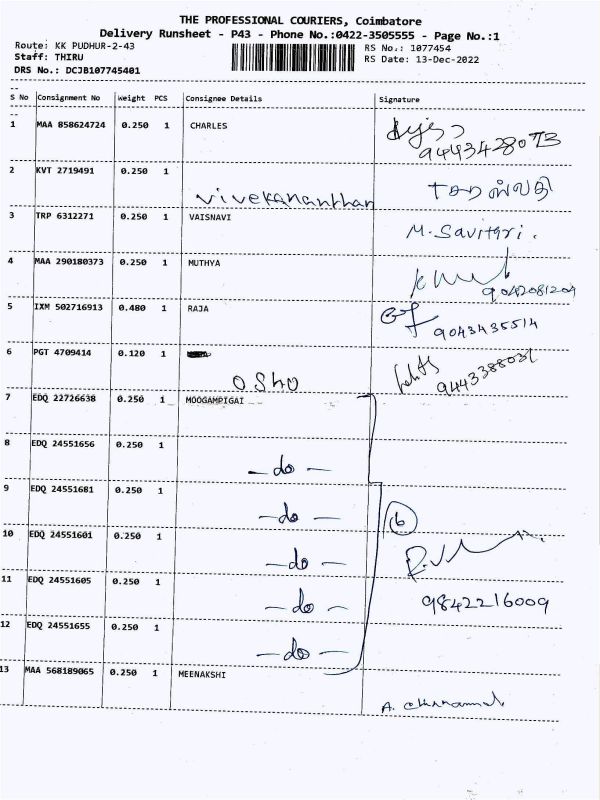 THE PROFESSIONAL COURIERS, Coimbatore
Delivery Runsheet - P43 - Phone No.:0422-3505555 - Page No.:1
Route: KK PUDHUR-2-43 RS No.: 1077454
Staff: THIRU RS Date: 13-Dec-2022
DRS No.: DCJB107745401
--
S No Consignment No Weight PCS Consignee Details Signature
--
1 MAA 858624724 0.250 1 CHARLES
9443428073
2 KVT 2719491 0.250 1
Vivekananthan
3 TRP 6312271 0.250 1 VAISNAVI M. Savithri.
4 MAA 290180373 0.250 1 MUTHYA
9042081204
5 IXM 502716913 0.480 1 RAJA
9043435514
6 PGT 4709414 0.120 1
OSHO 9443388031
7 EDQ 22726638 0.250 1 MOOGAMPIGAI
8 EDQ 24551656 0.250 1
- do -
9 EDQ 24551681 0.250 1
- do - 6
10 EDQ 24551601 0.250 1
- do -
11 EDQ 24551605 0.250 1
- do - 9842216009
12 EDQ 24551655 0.250 1
- do -
13 MAA 568189065 0.250 1 MEENAKSHI
A.